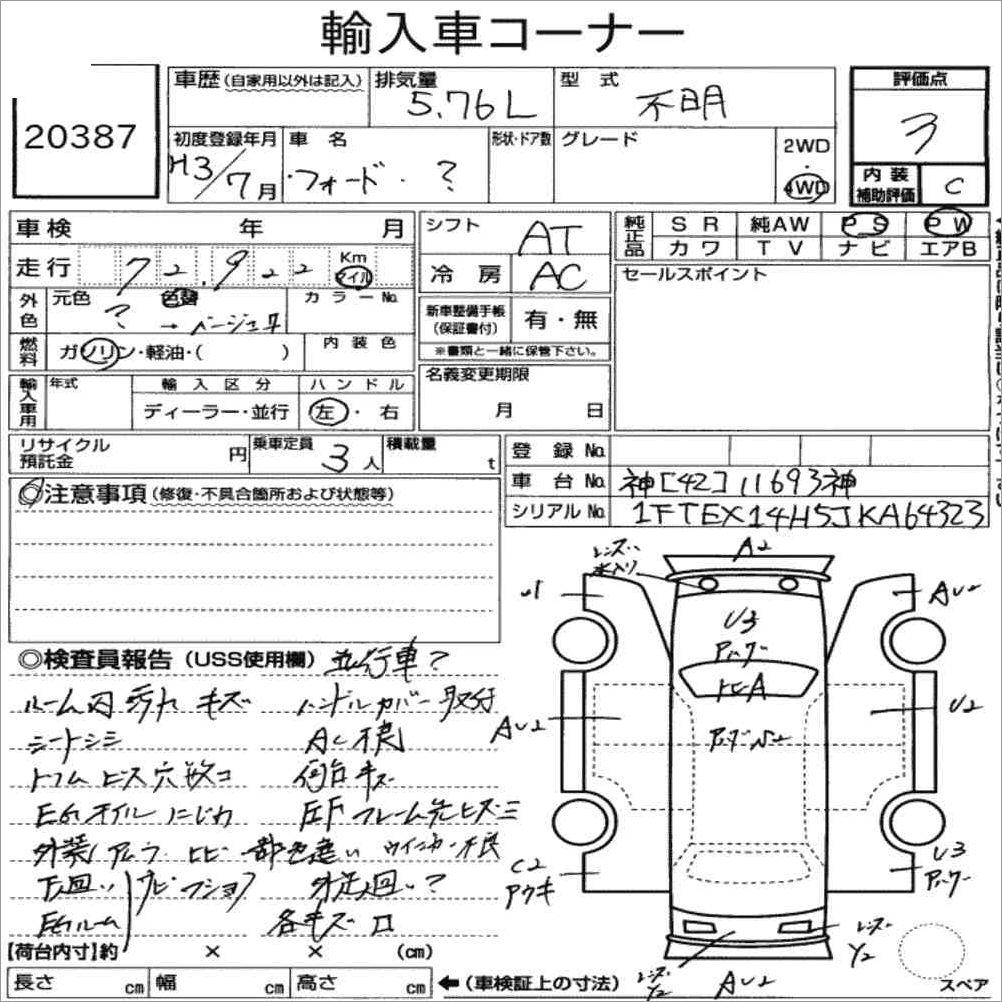 輸入車コーナー
20387
車歴(自家用以外は記入)
排気量 5.76L
型式 不明
評価点 3
初度登録年月 H3/7月
車名 ・フォード・?
形状・ドア数
グレード
2WD・4WD
内装補助評価 C
車検 年 月
シフト AT
純正品 SR 純AW PS PW
カワ TV ナビ エアB
走行 72,922 Km マイル
冷房 AC
セールスポイント
外色 元色 ? 色替 → ベージュ
カラーNo.
新車整備手帳(保証書付) 有・無
※書類と一緒に保管下さい。
燃料 ガソリン・軽油・( )
内装色
名義変更期限 月 日
輸入車用 年式
輸入区分 ディーラー・並行
ハンドル 左・右
リサイクル預託金 円
乗車定員 3人
積載量 t
登録No.
車台No. 神[42]11693神
シリアルNo. 1FTEX14H5JKA64323
◎注意事項(修復・不具合箇所および状態等)
◎検査員報告(USS使用欄) 並行車?
ルーム内汚れ キズ ハンドルカバー取付
シートシミ AC不良
ビス穴数コ 荷台キズ
EGオイルにじみ 左Fフレーム先ヒズミ
外装 ヒビ 一部色違い ウインカー不良
下廻り サビ 外 廻り?
EGルーム 各キズ
レンズ 水入り
A2
U1
AU2
U3
トビA
AU2
U2
C2
U3
レンズ Y2
レンズ Y2
AU2
スペア
【荷台内寸】約 × × (cm)
長さ cm 幅 cm 高さ cm ←(車検証上の寸法)